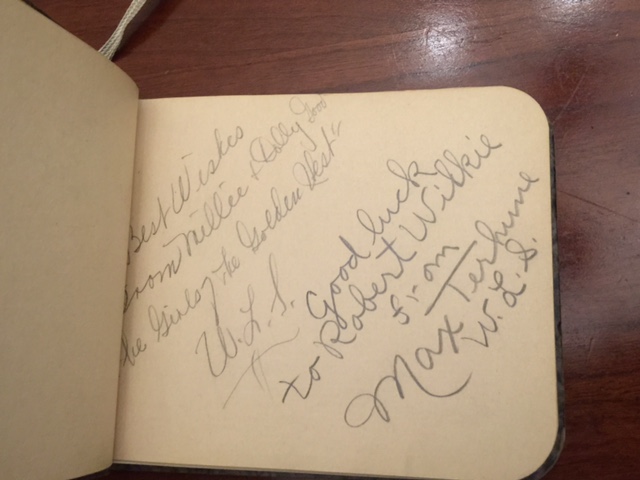 Best Wishes
From Millie & Dolly Good
The Girls of the Golden West"
W.L.S.
Good luck
to Robert Wilkie
From
Max Terhune
W.L.S.